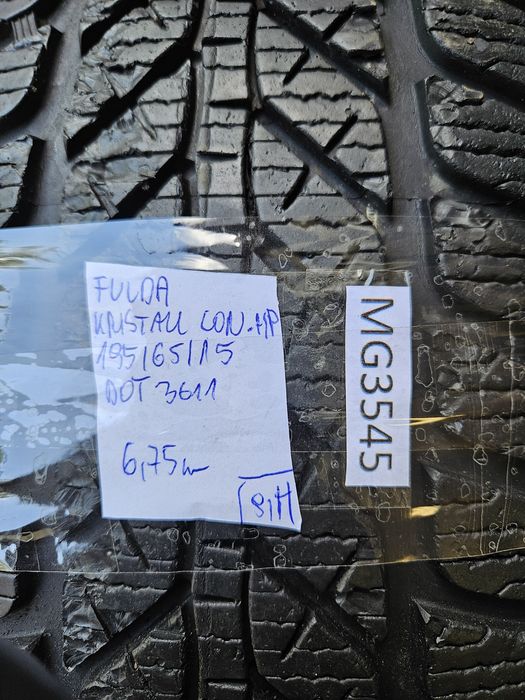 FULDA
KRISTALL CON. HP
195/65/15
DOT 3611
6,75
MG3545